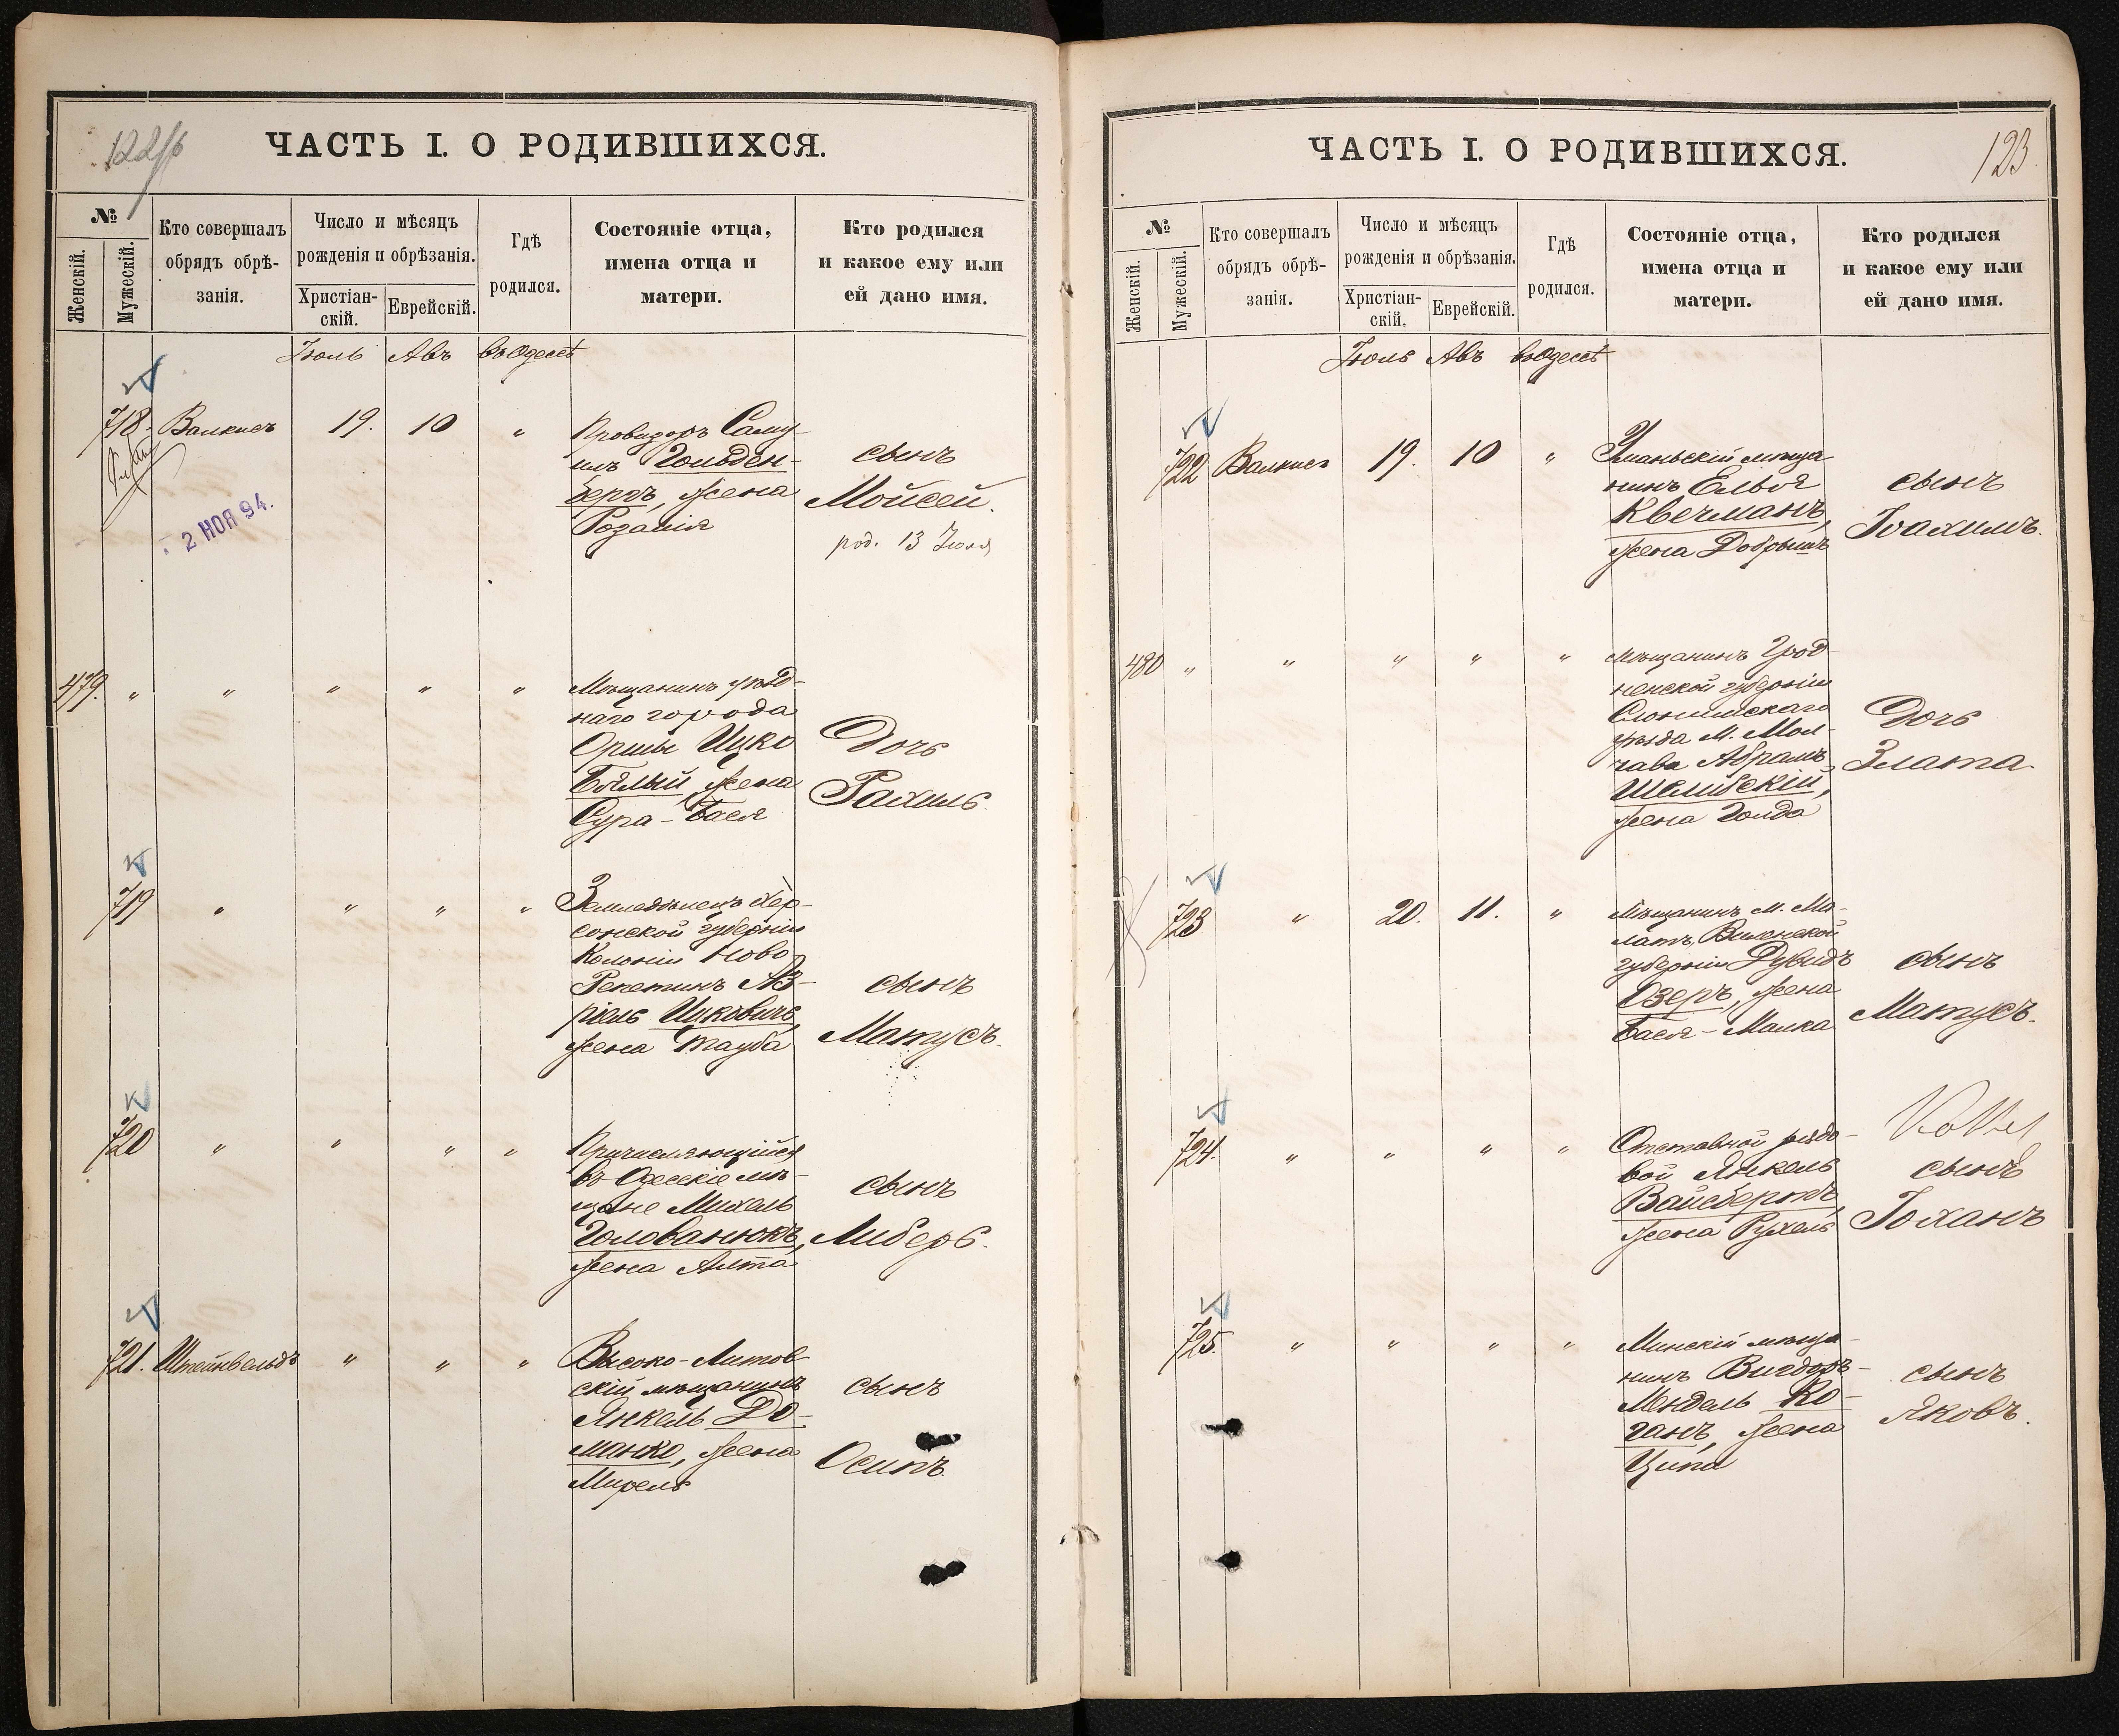 122/б
ЧАСТЬ I. О РОДИВШИХСЯ.
№
Женскій.
Мужескій.
Кто совершалъ
обрядъ обрѣ-
занія.
Число и мѣсяцъ
рожденія и обрѣзанія.
Христіан-
скій.
Еврейскій.
Гдѣ
родился.
Состояніе отца,
имена отца и
матери.
Кто родился
и какое ему или
ей дано имя.
Іюль Авъ въ Одессѣ
718. Валкисъ 19. 10 "
Провизоръ Саму-
илъ Гольден-
бергъ, жена
Розалія
сынъ
Мойсей.
род. 13 Іюля
2 НОЯ 94.
479. " " " " "
Мѣщанинъ уѣзд-
наго города
Орши Ицко
Бѣлый жена
Сура-Бася
Дочь
Рахиль.
719 " " " "
Земледѣлецъ Хер-
сонской губерніи
Колоніи Ново
Репетинъ Аз-
ріель Ицковичъ,
жена Тауба
сынъ
Матусъ.
720 " " " "
Причисляющійся
въ Одесскіе мѣ-
щане Михель
Голованюкъ,
жена Алта
сынъ
Либеръ.
721. Штейнвельдъ " " "
Высоко-Литов-
скій мѣщанинъ
Янкель До-
манко, жена
Мирель
сынъ
Осипъ.
123.
ЧАСТЬ I. О РОДИВШИХСЯ.
№
Женскій.
Мужескій.
Кто совершалъ
обрядъ обрѣ-
занія.
Число и мѣсяцъ
рожденія и обрѣзанія.
Христіан-
скій.
Еврейскій.
Гдѣ
родился.
Состояніе отца,
имена отца и
матери.
Кто родился
и какое ему или
ей дано имя.
Іюль Авъ въ Одессѣ
722 Валкисъ 19. 10 "
Уманьскій мѣща-
нинъ Ельья
Квечманъ,
жена Добрышъ
сынъ
Іоахимъ.
480 " " " " "
Мѣщанинъ Грод-
ненской губерніи
Слонимскаго
уѣзда М. Мол-
чавa Абрамъ
Шелибскій,
жена Голда
Дочь
Злата.
723 " 20. 11. "
Мѣщанинъ м. Ма-
латъ, Виленской
губерніи Дувидъ
Озеръ, жена
Бася-Малка
сынъ
Матусъ.
724. " " " "
Отставной рядо-
вой Янкель
Вайсбергъ,
жена Рухель
сынъ
Іоханъ
725. " " " "
Минскій мѣща-
нинъ Вигдоръ-
Мендель Ко-
ганъ, жена
Ципа
сынъ
Яковъ.